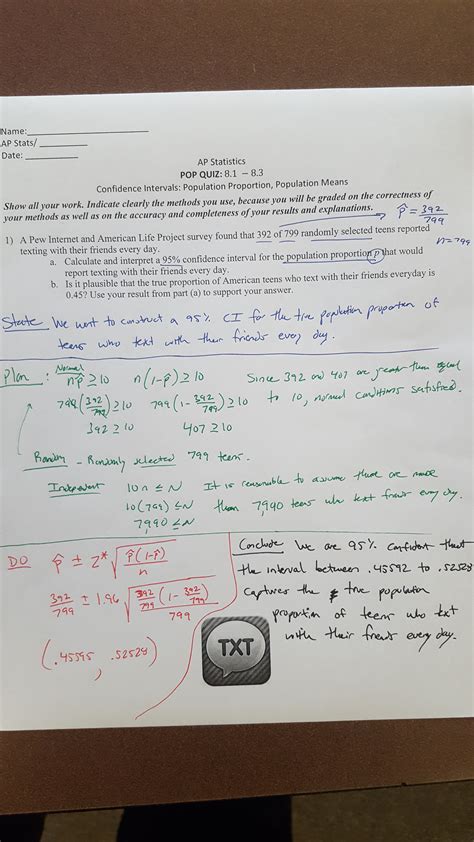 Name:
AP Stats/
Date:
AP Statistics
POP QUIZ: 8.1 – 8.3
Confidence Intervals: Population Proportion, Population Means
Show all your work. Indicate clearly the methods you use, because you will be graded on the correctness of
your methods as well as on the accuracy and completeness of your results and explanations.
p̂ = 392/799
n=799
1) A Pew Internet and American Life Project survey found that 392 of 799 randomly selected teens reported
texting with their friends every day.
a. Calculate and interpret a 95% confidence interval for the population proportion p that would
report texting with their friends every day.
b. Is it plausible that the true proportion of American teens who text with their friends everyday is
0.45? Use your result from part (a) to support your answer.
State We want to construct a 95% CI for the true population proportion of
teens who text with their friends every day.
Plan : Normal
np̂ ≥ 10 n(1-p̂) ≥ 10 Since 392 and 407 are greater than equal
799(392/799) ≥ 10 799(1-392/799) ≥ 10 to 10, normal conditions satisfied.
392 ≥ 10 407 ≥ 10
Random - Randomly selected 799 teens.
Independent 10n ≤ N It is reasonable to assume there are more
10(799) ≤ N than 7,990 teens who text friends every day.
7,990 ≤ N
DO p̂ ± z* √(p̂(1-p̂)/n)
392/799 ± 1.96 √(392/799(1-392/799)/799)
(.45595, .52528)
Conclude We are 95% confident that
the interval between .45592 to .52528
captures the true population
proportion of teens who text
with their friends every day.
TXT